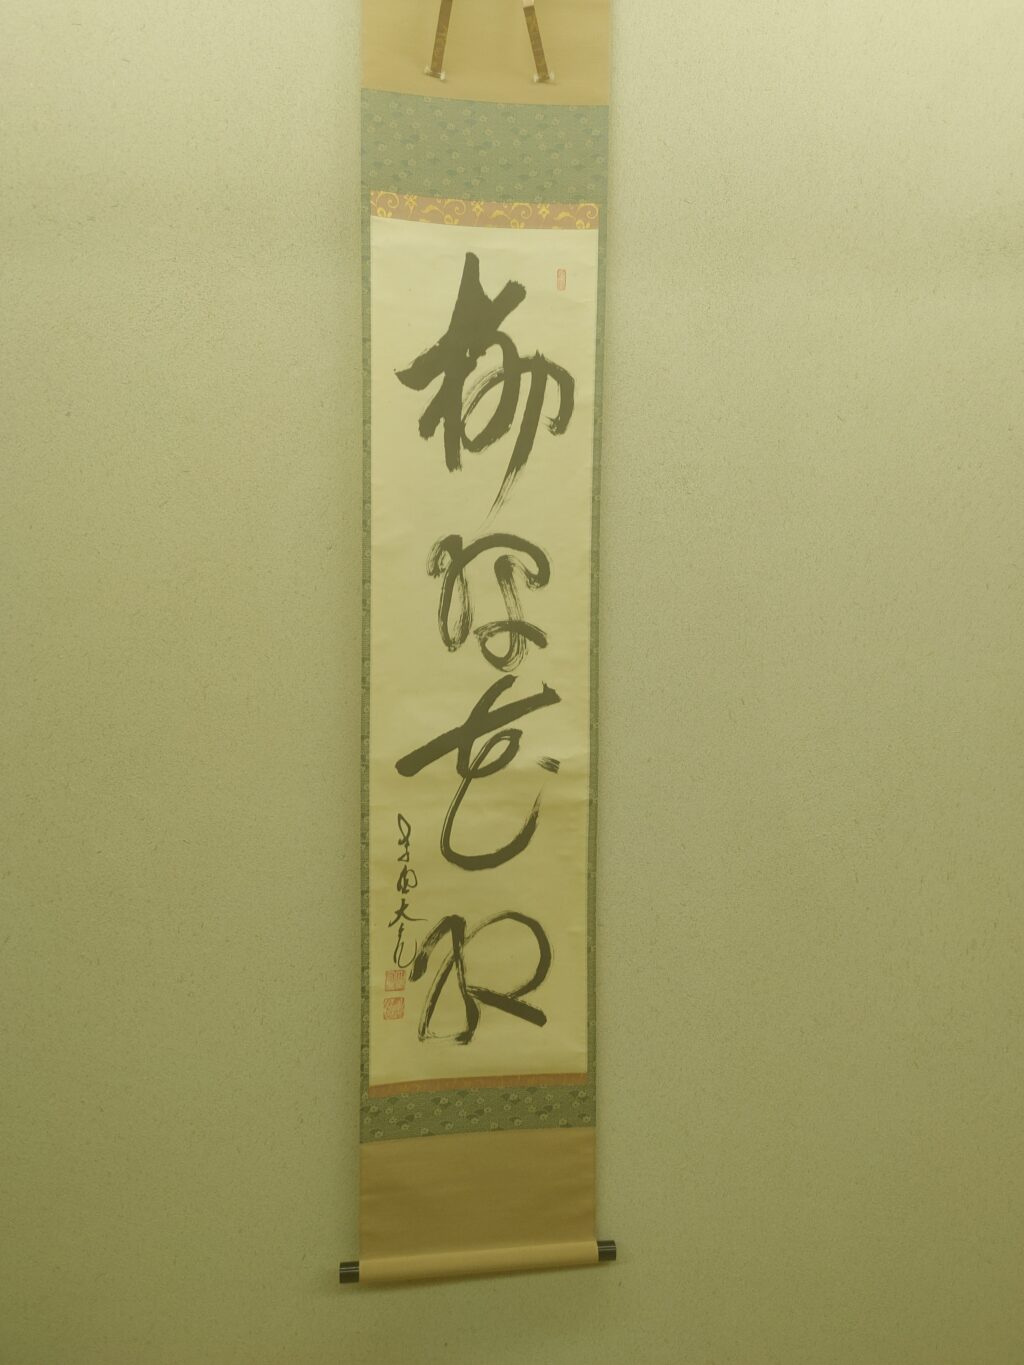 柳緑花紅
大亀